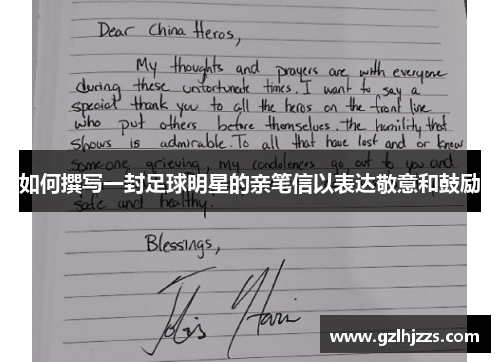 Dear China Heros,
My thoughts and prayers are with everyone
during these unfortunate times. I want to say a
special thank you to all the heros on the front line
who put others before themselves. the humility that
shows is admirable. To all that have lost and or know
someone grieving, my condolences go out to you and
如何撰写一封足球明星的亲笔信以表达敬意和鼓励
safe and healthy.
Blessings,
www.gzlhjzzs.com